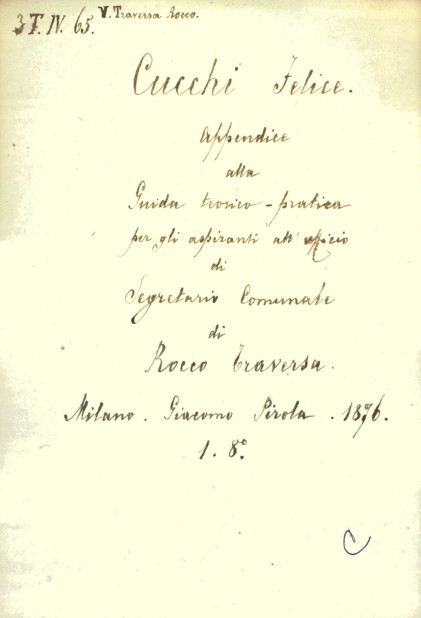 3 F. IV. 65.
V. Traversa Rocco.
Cucchi Felice.
Appendice
alla
Guida teorico-pratica
per gli aspiranti all' ufficio
di
Segretario Comunale
di
Rocco Traversa.
Milano. Giacomo Pirola. 1876.
1. 8°.
C